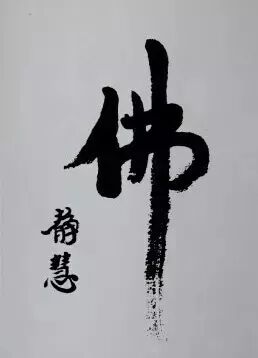 佛
静慧